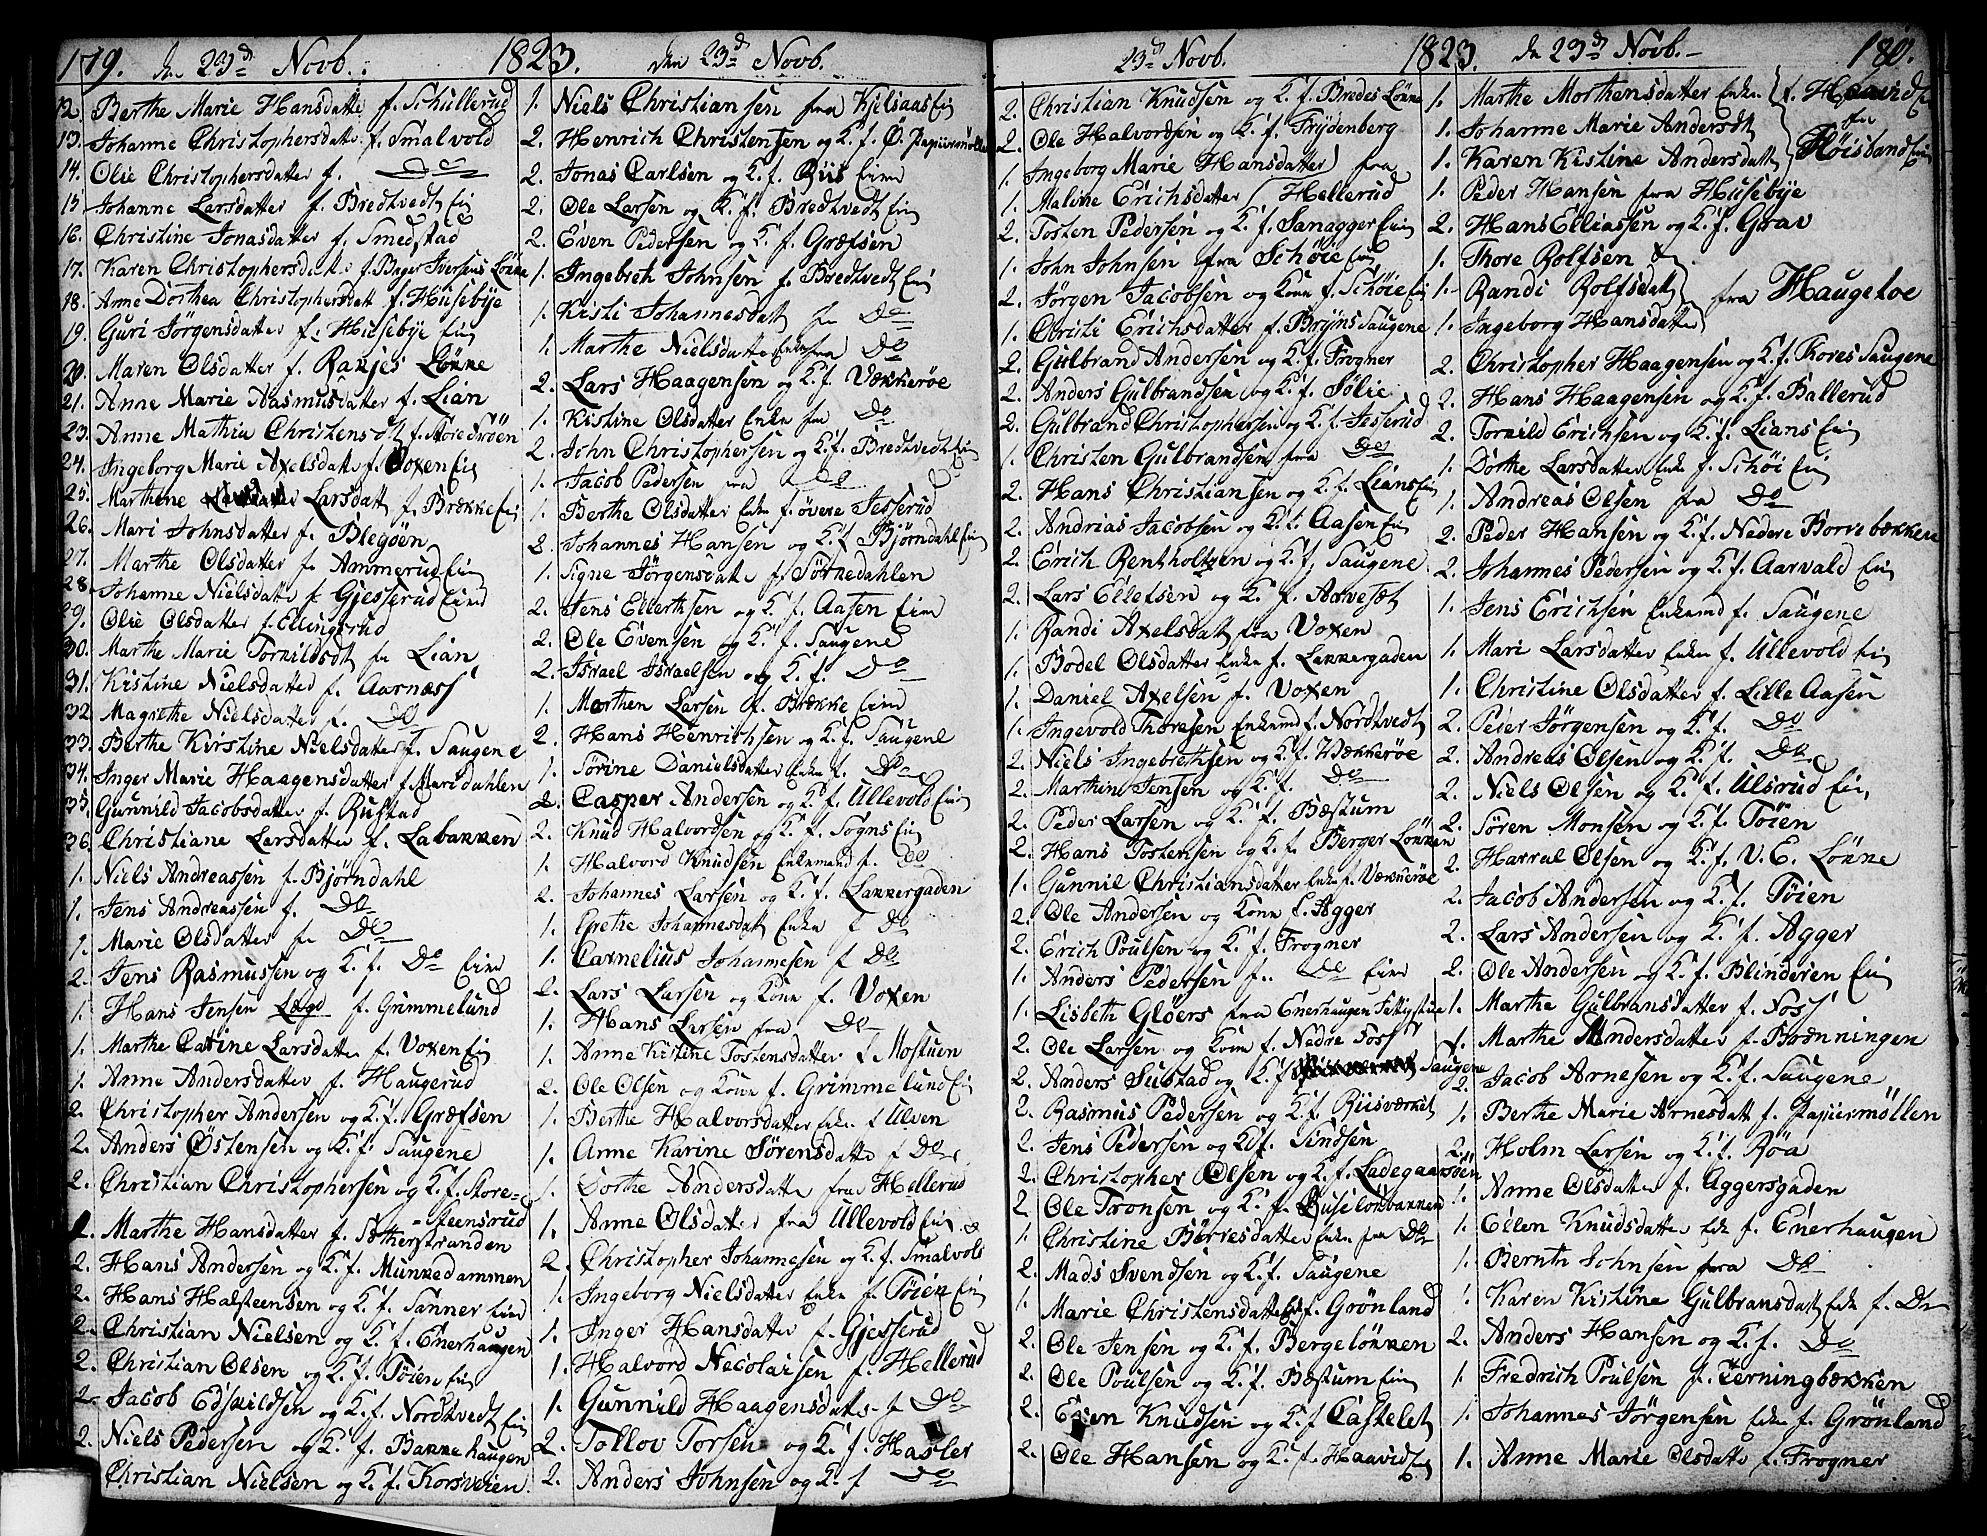 179. den 23d Novb. 1823. den 23d Novb.
12. Berthe Marie Hansdatter f. Schullerud
13. Johanne Christophersdatter f. Smalvold
14. Olie Christophersdatter f. Do
15. Johanne Larsdatter f. Bredtvedt Ei
16. Christine Jonasdatter f. Smedstad
17. Karen Christophersd f. Bager Iversens Løkke
18. Anne Dorthea Christophersdatt f. Husebÿe
19. Guri Jörgensdatter f. Husebÿe Ei
20. Maren Olsdatter f. Løkke
21. Anne Marie Rasmusdatter f. Lian
23. Anne Mathia Christensdt f. Store Froen
24. Ingeborg Marie Axelsdatt f. Voxen Ei
25. Marthene Larsdatt f. Brække Ei
26. Mari Johnsdatter f. Blegöen
27. Marthe Olsdatter f. Ammerud Ei
28. Johanne Nielsdatter f. Gjesserud Eind
29. Olie Olsdatter f. Ellingsrud
30. Marthe Marie Torkildsdt fra Lian
31. Kistine Nielsdatter f. Aarnæss
32. Magrethe Nielsdatter f. Do
33. Berthe Kirstine Nielsdatter f. Saugene
34. Inger Marie Haagensdatter f. Maridahlen
35. Gunnild Jacobsdatter f. Rustad
36. Christiane Larsdatter f. Labakken
1. Niels Andreassen f. Bjørndahl
1. Jens Andreassen f. Do
1. Marie Olsdatter fra Do
2. Jens Rasmussen og K. f. Do Eind
1. Hans Jensen Lægd f. Grimmelund
1. Marthe Catrine Larsdatter f. Voxen Ei
1. Anne Andersdatter f. Haugerud
2. Christopher Andersen og K. f. Græfsen
2. Anders Östensen og K. f. Saugene
2. Christian Christophersen og K. f. Store=
=Steensrud
1. Marthe Hansdatter f. Sætherstranden
2. Hans Andersen og K. f. Munkedammen
2. Hans Halsteensen og K. f. Sanner Eind
2. Christian Nielsen og K. f. Enerhaugen
2. Christian Olsen og K. f. Töien Ei
2. Jacob Edskildsen og K. f. Nordtvedt Ei
2. Niels Pedersen og K. f. Bakkehaugen
Christian Nielsen og K. f. Korsveien
1. Niels Christiansen fra Kjelsaas Ei
2. Henrich Christensen og K. f. Ö. Papiirmølle
2. Jonas Carlsen og K. f. Riis Eind
2. Ole Larsen og K. f. Bredtvedt Ei
2. Even Pedersen og K. f. Græfsen
1. Ingebreth Johnsen f. Bredtvedt Ei
1. Kisti Johannesdatt fra Do
1. Marthe Nielsdatter Enke fra Do
2. Lars Haagensen og K. f. Vækkerøe
1. Kistine Olsdatter Enke fra Do
2. John Christophersen og K. f. Bredtvedt Ei
1. Jacob Pedersen fra Do
1. Berthe Olsdatter Enke f. övere Jesserud
2. Johannes Hansen og K. f. Björndahl Ei
1. Signe Jörgensdatter f. Sörkedahlen
2. Jens Ellertsen og K. f. Aasen Eind
2. Ole Evensen og K. f. Saugene
2. Israel Israelsen og K. f. Do
1. Morthen Larsen f. Brække Eind
2. Hans Henrichsen og K. f. Saugene
1. Sörine Danielsdatter Enke f. Do
2. Casper Andersen og K. f. Ullevold Ei
2. Knud Halvordsen og K. f. Sogns Ei
1. Halvord Knudsen Enkemand f. Do
2. Johannes Larsen og K. f. Lakkergaden
1. Grethe Johannesdatt Enke f. Do
1. Cornelius Johannesen f. Do
2. Lars Larsen og Kone f. Voxen
1. Hans Larsen fra Do
1. Anne Kistine Tostensdatter f. Mostuen
2. Ole Olsen og Kone f. Grimmelund Ei
1. Berthe Halvorsdatter Enke f. Ulven
1. Anne Karine Sörensdatter f. Do
1. Dorthe Andersdatter fra Hellerud
1. Anne Olsdatter fra Ullevold Ei
2. Christopher Johannesen og K. f. Smalvold
1. Ingeborg Nielsdatter Enke f. Töien Ei
1. Inger Hansdatter f. Gjesserud
1. Halvord Nicolaisen f. Hellerud
1. Gunnild Haagensdatter f. Do
2. Tollov Torsen og K. f. Hasler
2. Anders Johnsen og K. f. Do
23d Novb. 1823. d. 23d Novb. 180.
2. Christian Knudsen og K. f. Bredes Løkke
2. Ole Halvordsen og K. f. Frÿdenberg
1. Ingeborg Marie Hansdatter fra
1. Maline Erichsdatter Hellerud
2. Tosten Pedersen og K. f. Sanagger Ei
1. John Johnsen fra Schöie Ei
2. Jörgen Jacobsen og Kone f. Schöie Ei
1. Christi Erichsdatter f. Brÿns Saugene
2. Gulbrand Andersen og K. f. Frogner
2. Anders Gulbrandsen og K. f. Sölie
2. Gulbrand Christophersen og K. f. Jesserud
1. Christen Gulbrandsen fra Do
2. Hans Christiansen og K. f. Lians Ei
2. Andreas Jacobsen og K. f. Aasen Ei
2. Erich Rentholtzen og K. f. Saugene
2. Lars Ellefsen og K. f. Arvesæt
1. Randi Axelsdatt fra Voxen
1. Bodel Olsdatter Enke f. Lakkergaden
1. Daniel Axelsen f. Voxen
1. Ingevold Thoresen Enkemd f. Nordtvedt
2. Niels Ingebrethsen og K. f. Vækkerøe
2. Marthin Jensen og K. f. Do
2. Peder Larsen og K. f. Bæstum
2. Hans Tostensen og K. f. Berger Løkken
1. Gunnil Christiansdatter Enke f. Vækkerøe
2. Ole Andersen og Kone f. Agger
2. Erich Poulsen og K. f. Frogner
1. Anders Pedersen f. Do Eind
1. Lisbeth Glöers fra Enerhaugen Fattigstue
2. Ole Larsen og Kone f. Nedre Foss
2. Anders Sustad og K. f. Saugene
2. Rasmus Pedersen og K. f. Riisværket
2. Jens Pedersen og K. f. Sindsen
2. Christopher Olsen og K. f. Ladegaarsöen
2. Ole Tronsen og K. f. Huseløkbakken
1. Christine Börresdatter Enke fra Do
2. Mads Svendsen og K. f. Saugene
1. Marie Christensdatter f. Grönland
2. Ole Jensen og K. f. Bergeløkken
2. Ole Poulsen og K. f. Bæstum Ei
2. Even Knudsen og K. f. Castelet
2. Ole Hansen og K. f. Haavids Ei
1. Marthe Morthensdatter Enke f. Haavids Ei
1. Johanne Marie Andersdt fra
1. Karen Kistine Andersdatt Röisland Ei
1. Peder Hansen fra Husebÿe
2. Hans Elliassen og K. f. Grav
1. Thore Rolfsen &
1. Randi Rolfsdatt fra Haugetoe
1. Ingeborg Hansdatter
2. Christopher Haagensen og K. f. Kores Saugene
2. Hans Haagensen og K. f. Ballerud
2. Torkild Erichsen og K. f. Lians Ei
1. Dorthe Larsdatter Enke f. Schöi Ei
1. Andreas Olsen fra Do
2. Peder Hansen og K. f. Nedere Borrebækken
2. Johannes Pedersen og K. f. Aarvald Ei
1. Jens Erichsen Enkemd f. Saugene
1. Mari Larsdatter Enke f. Ullevold Ei
1. Christine Olsdatter f. Lille Aasen
2. Peder Jörgensen og K. f. Do
2. Andreas Olsen og K. f. Do
2. Niels Olsen og K. f. Ulsrud Ei
2. Sören Monsen og K. f. Töien
2. Harral Olsen og K. f. V. E. Løkke
2. Jacob Andersen og K. f. Töien
2. Lars Andersen og K. f. Agger
2. Ole Andersen og K. f. Blinderen Ei
1. Marthe Gulbransdatter f. Foss
1. Marthe Andersdatter f. Brænningen
2. Jacob Arnesen og K. f. Saugene
1. Berthe Marie Arnesdatt f. Papiirmøllen
2. Holm Larsen og K. f. Röa
1. Anne Olsdatter f. Aggersgaden
1. Ellen Knudsdatter Enke f. Enerhaugen
1. Bernth Johnsen fra Do
1. Karen Kistine Gulbransdatt Enke f. Do
2. Anders Hansen og K. f. Do
1. Fredrich Poulsen f. Terningbækken
1. Johannes Jörgensen Enke f. Grönland
1. Anne Marie Olsdatter f. Frogner